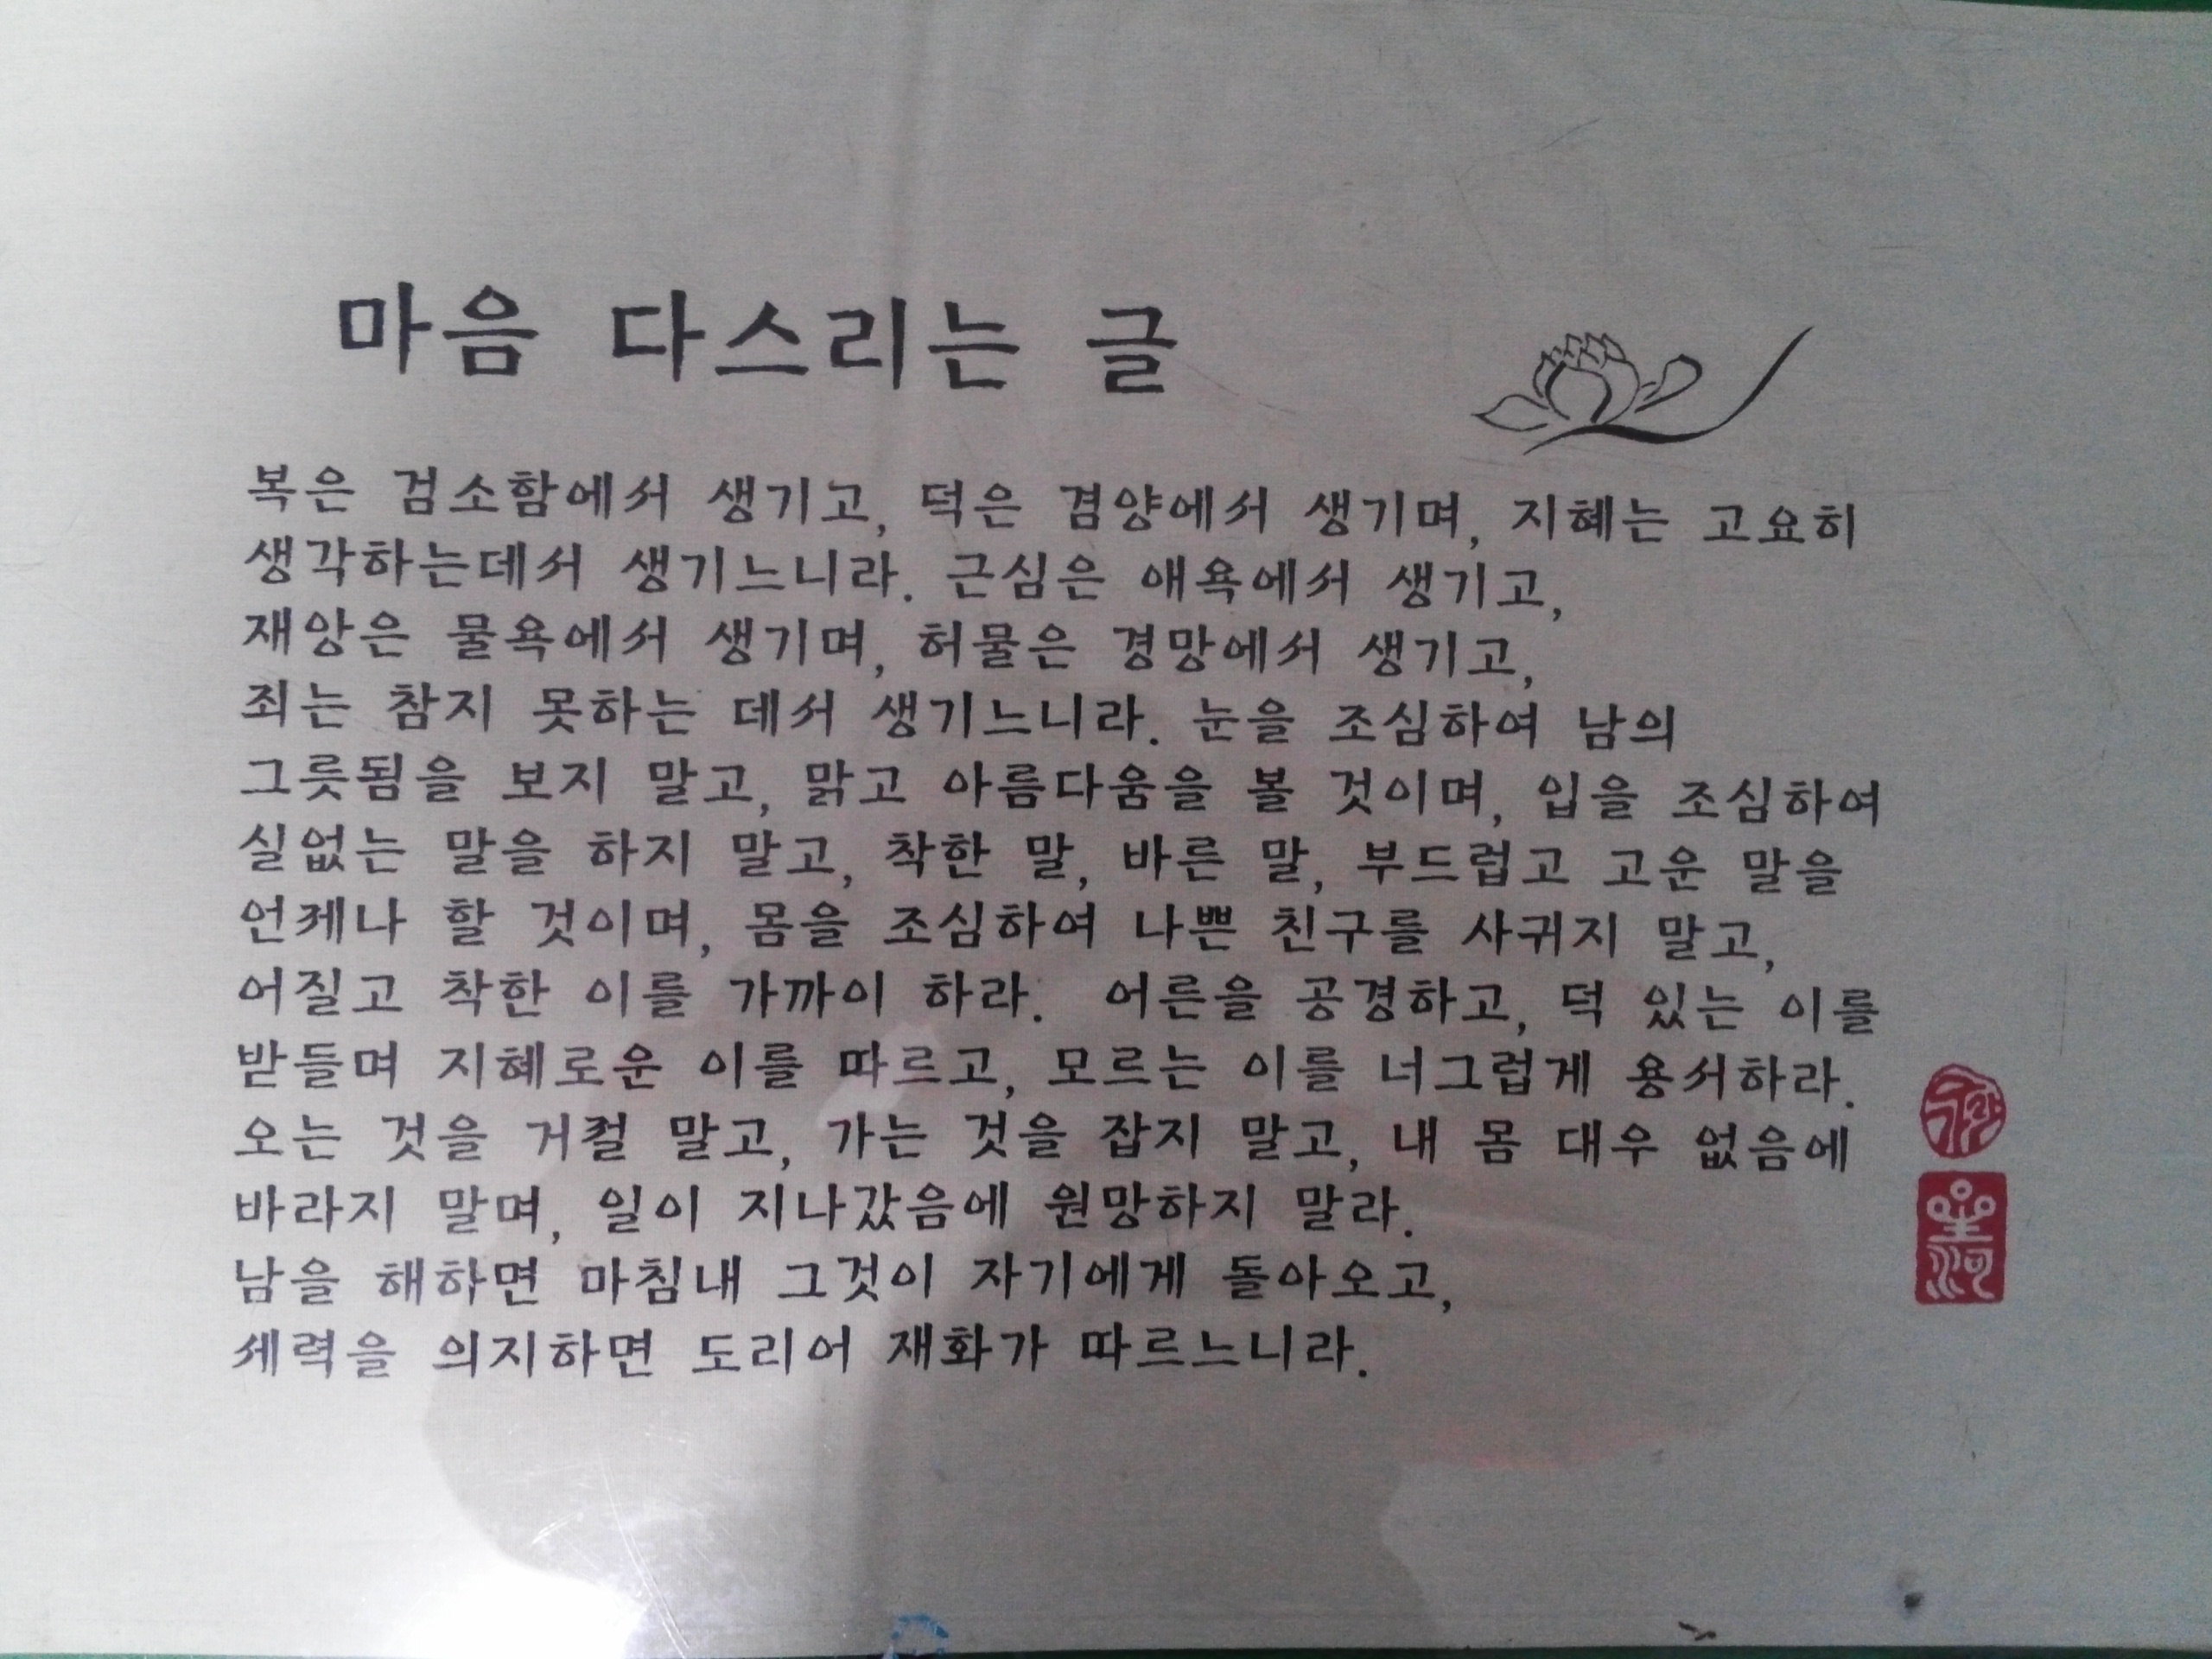 마음 다스리는 글
복은 검소함에서 생기고, 덕은 겸양에서 생기며, 지혜는 고요히
생각하는데서 생기느니라. 근심은 애욕에서 생기고,
재앙은 물욕에서 생기며, 허물은 경망에서 생기고,
죄는 참지 못하는 데서 생기느니라. 눈을 조심하여 남의
그릇됨을 보지 말고, 맑고 아름다움을 볼 것이며, 입을 조심하여
실없는 말을 하지 말고, 착한 말, 바른 말, 부드럽고 고운 말을
언제나 할 것이며, 몸을 조심하여 나쁜 친구를 사귀지 말고,
어질고 착한 이를 가까이 하라. 어른을 공경하고, 덕 있는 이를
받들며 지혜로운 이를 따르고, 모르는 이를 너그럽게 용서하라.
오는 것을 거절 말고, 가는 것을 잡지 말고, 내 몸 대우 없음에
바라지 말며, 일이 지나갔음에 원망하지 말라.
남을 해하면 마침내 그것이 자기에게 돌아오고,
세력을 의지하면 도리어 재화가 따르느니라.